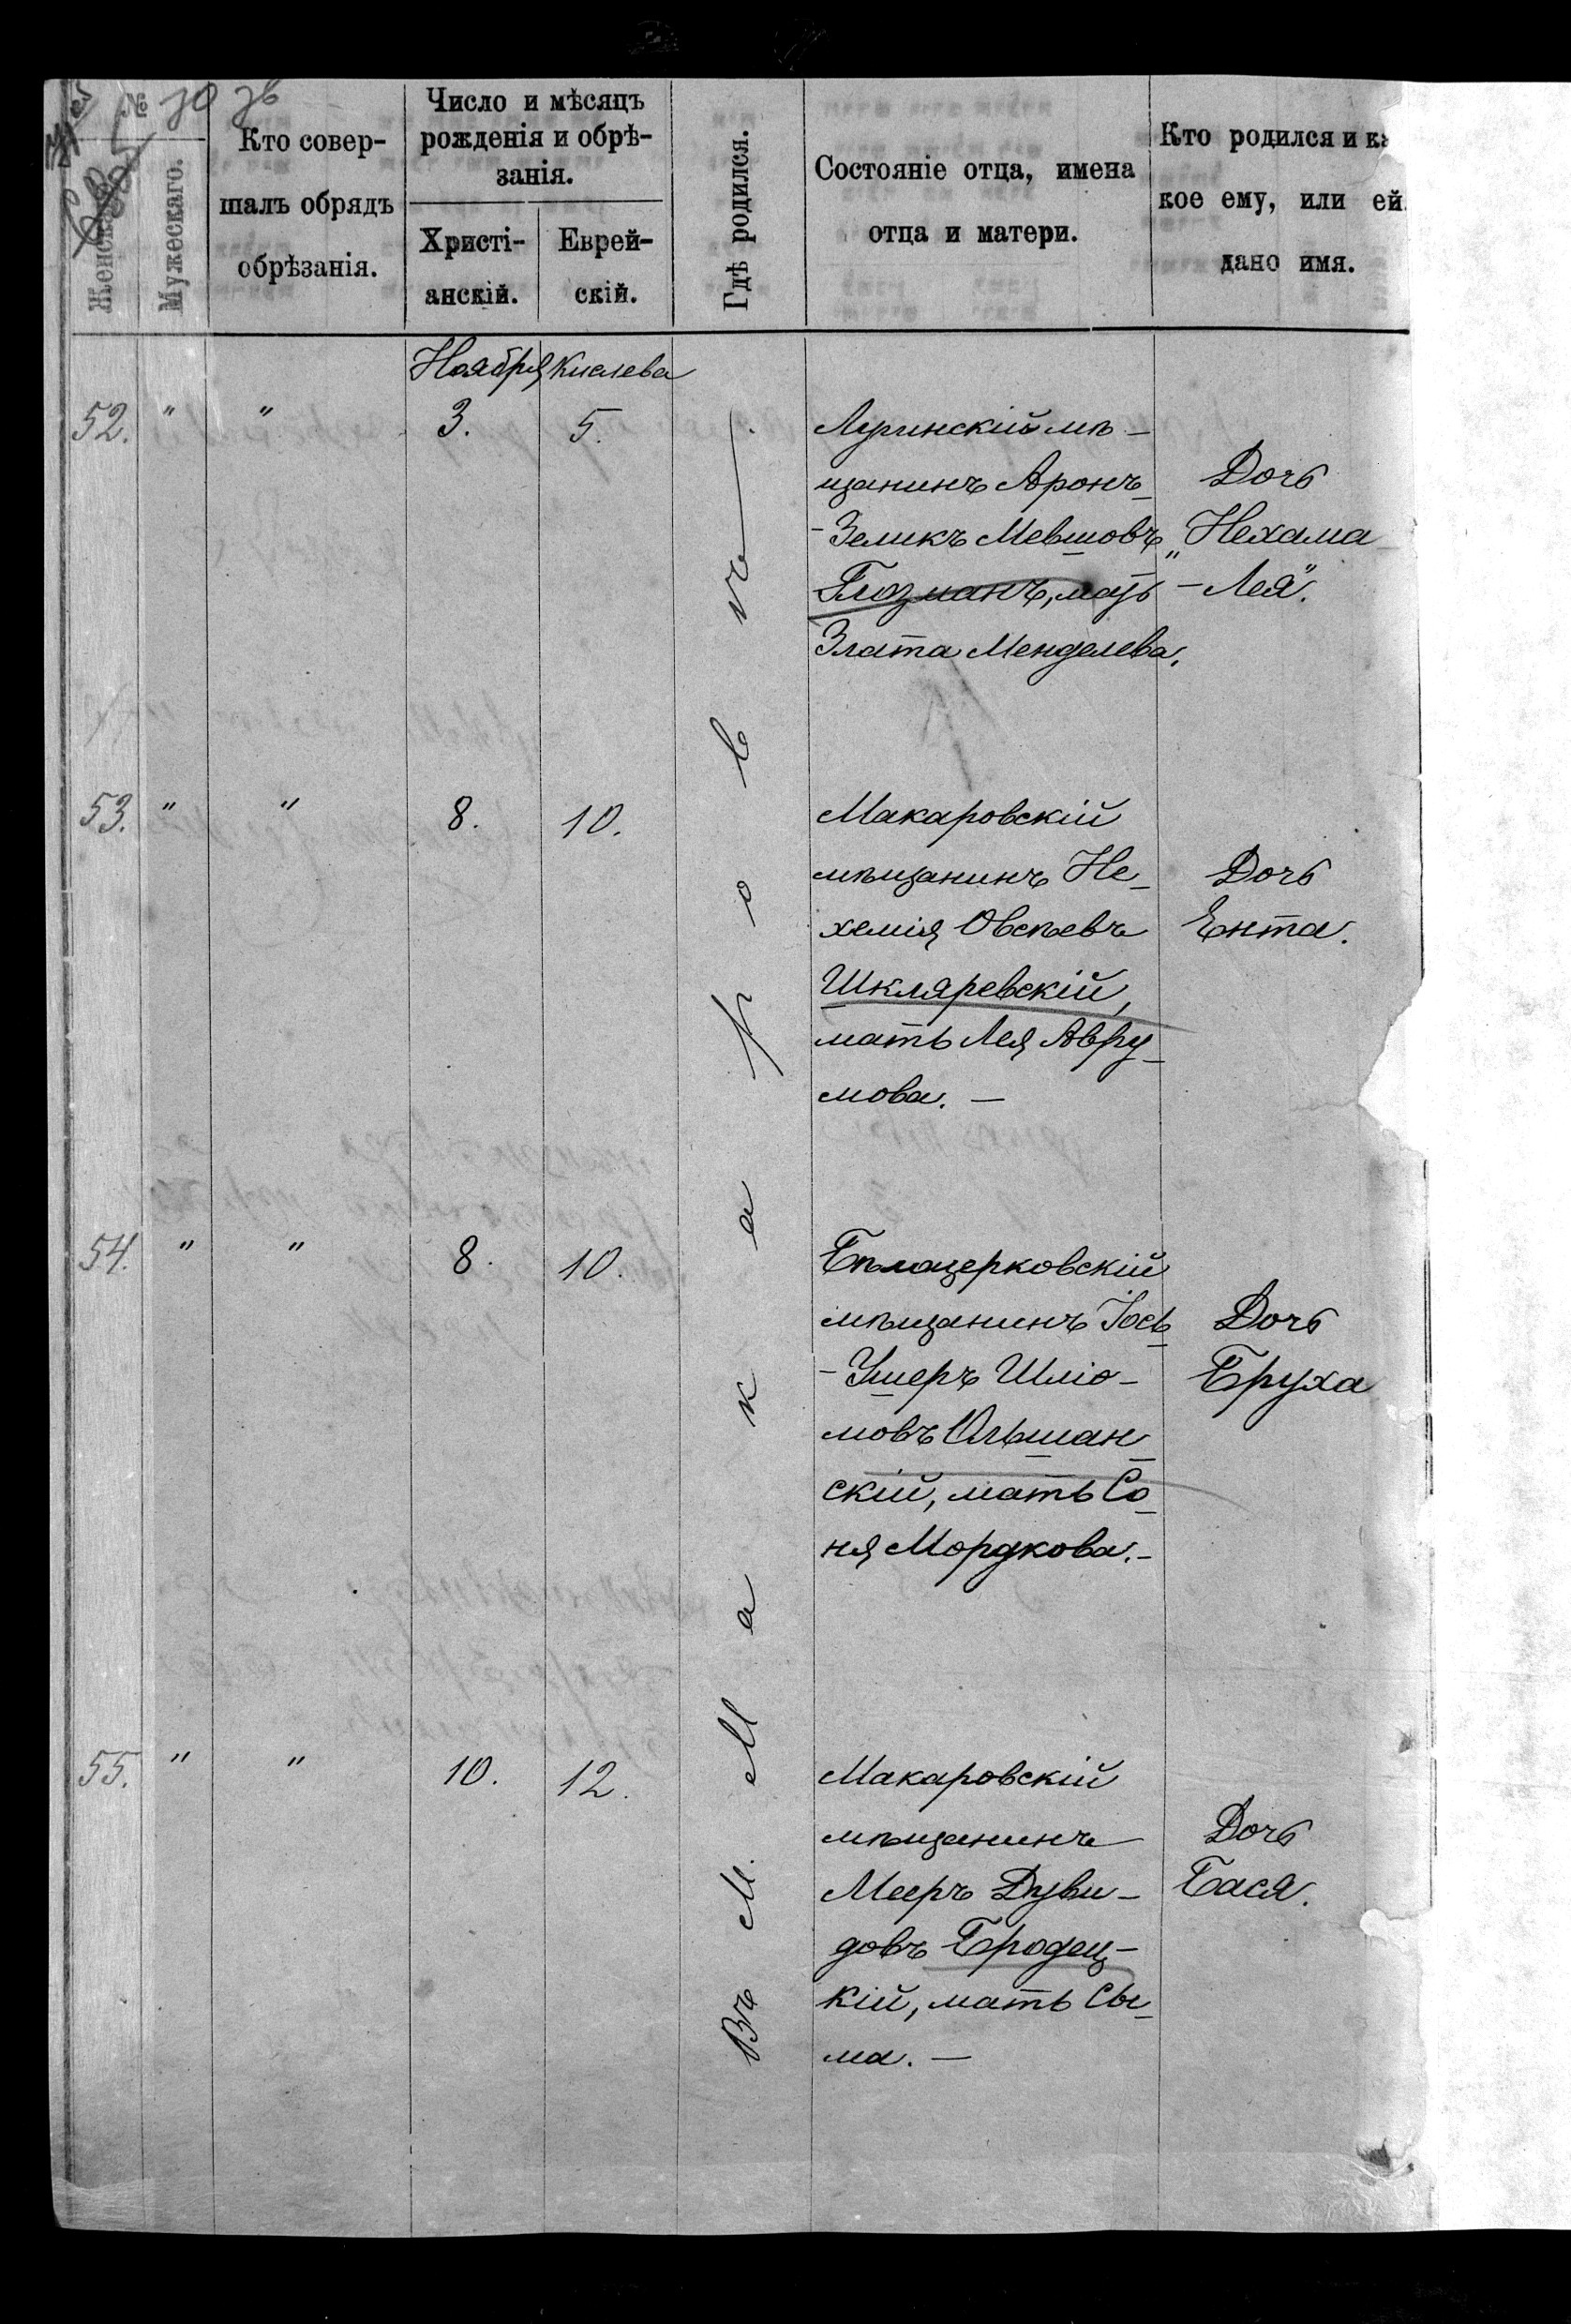 №
Женскаго.
Мужескаго.
Кто совер-
шалъ обрядъ
обрѣзанія.
Число и мѣсяцъ
рожденія и обрѣ-
занія.
Христі-
анскій.
Еврей-
скій.
Гдѣ родился.
Состояніе отца, имена
отца и матери.
Кто родился и ка
кое ему, или ей
дано имя.
Ноября Кислева
52. " " 3. 5.
Лугинскій мѣ-
щанинъ Аронъ-
-Зеликъ Мевшовъ
Глозманъ, мать
Злата Менделева.
Дочь
„Нехама
-Лея".
53. " " 8. 10.
Макаровскій
мѣщанинъ Не-
хемія Овсѣевъ
Шкляревскій,
мать Лея Авру-
мова. —
Дочь
Ента.
54. " " 8. 10.
Бѣлоцерковскій
мѣщанинъ Іось
-Ушеръ Шліо-
мовъ Ольшан-
скій, мать Со-
ня Мордкова. -
Дочь
Бруха
55. " " 10. 12.
Макаровскій
мѣщанинъ
Мееръ Дуви-
довъ Бродец-
кій, мать Сы-
ма. —
Дочь
Бася.
Въ М. Макаровъ